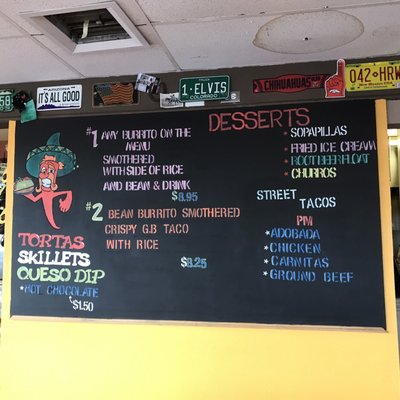 IT'S ALL GOOD
1·ELVIS
COLORADO
CHIHUAHUAS
042·HRW
#1 ANY BURRITO ON THE
MENU
SMOTHERED
WITH SIDE OF RICE
AND BEAN & DRINK
$8.95
#2 BEAN BURRITO SMOTHERED
CRISPY G.B TACO
WITH RICE
$8.25
TORTAS
SKILLETS
QUESO DIP
*HOT CHOCOLATE
$1.50
DESSERTS
*SOPAPILLAS
*FRIED ICE CREAM
*ROOT BEER FLOAT
*CHURROS
STREET
TACOS
PM
*ADOBADA
*CHICKEN
*CARNITAS
*GROUND BEEF